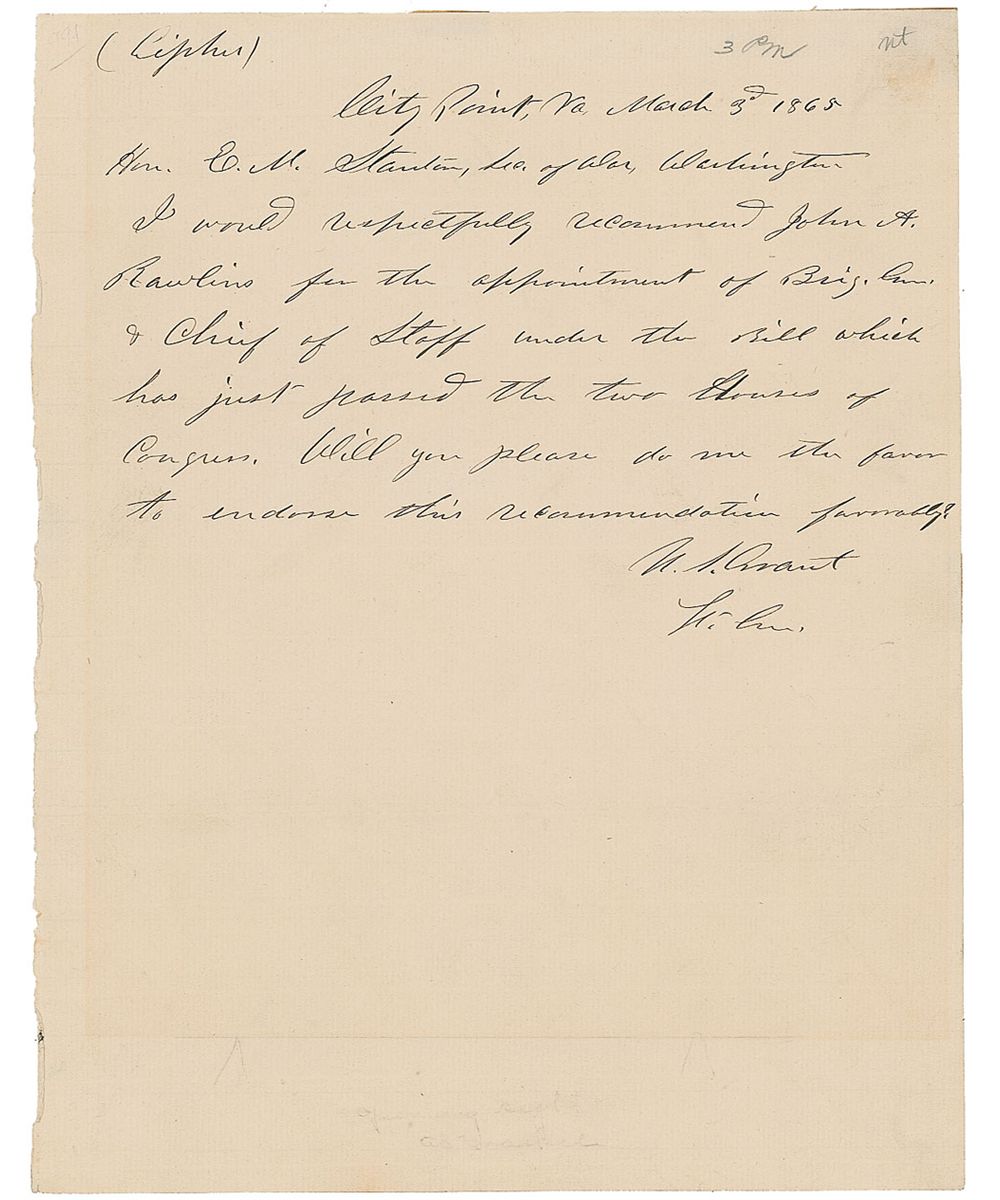 (Cipher)
3 PM
City Point, Va, March 3d 1865
Hon. E. M. Stanton, Sec. of War, Washington
I would respectfully recommend John A.
Rawlins for the appointment of Brig. Gn.
& Chief of Staff under the Bill which
has just passed the two Houses of
Congress. Will you please do me the favor
to endorse this recommendation favorably?
U. S. Grant
Lt. Gn.